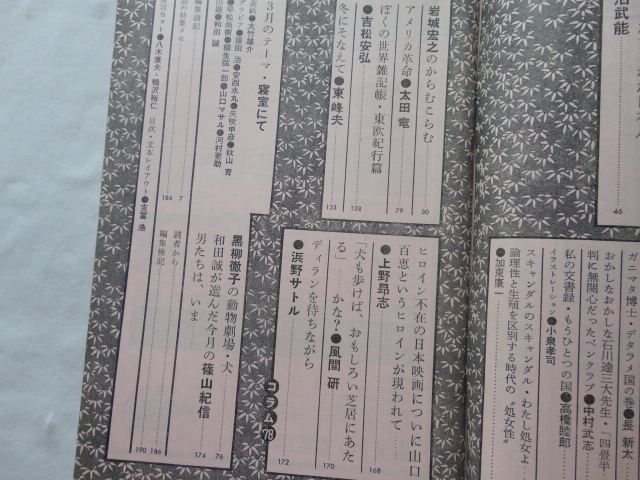 治武能
46
岩城宏之のからむこらむ
30
アメリカ革命●太田竜
79
ぼくの世界雑記帳・東欧紀行篇
●吉松安弘
128
冬にそなえて●東峰夫
133
3月のテーマ・寝室にて
表紙●大竹雄介
グラビア●原田治●安西水丸●矢吹申彦●秋山育
●早松尚樹●柳生弦一郎●山口マサル●河村要助
出題●和田誠
編集前記
7
今月の特集メモ
184
目次カット●八木康夫・鴨沢祐仁 目次・文本レイアウト●吉冨浩
ガニマタ博士・デタラメ国の巻●長新太
おかしなおかしな石川達三大先生・「四畳半
判に無関心だったペンクラブ●中村武志
私の交書録・もうひとつの国●高橋睦郎
イラストレーション●小泉孝司
スキャンダルのスキャンダル・わたし処女よ
論理性と生殖を区別する時代の〝処女性〟
●加東康一
ヒロイン不在の日本映画についに山口
百恵というヒロインが現われて
●上野昻志
168
「犬も歩けば、おもしろい芝居にあた
る」 かな?●風間研
170
ディランを待ちながら
●浜野サトル
172
コラム'78
黒柳徹子の動物劇場・犬
76
和田誠が選んだ今月の篠山紀信
174
男たちは、いま
読者から
186
編集後記
190